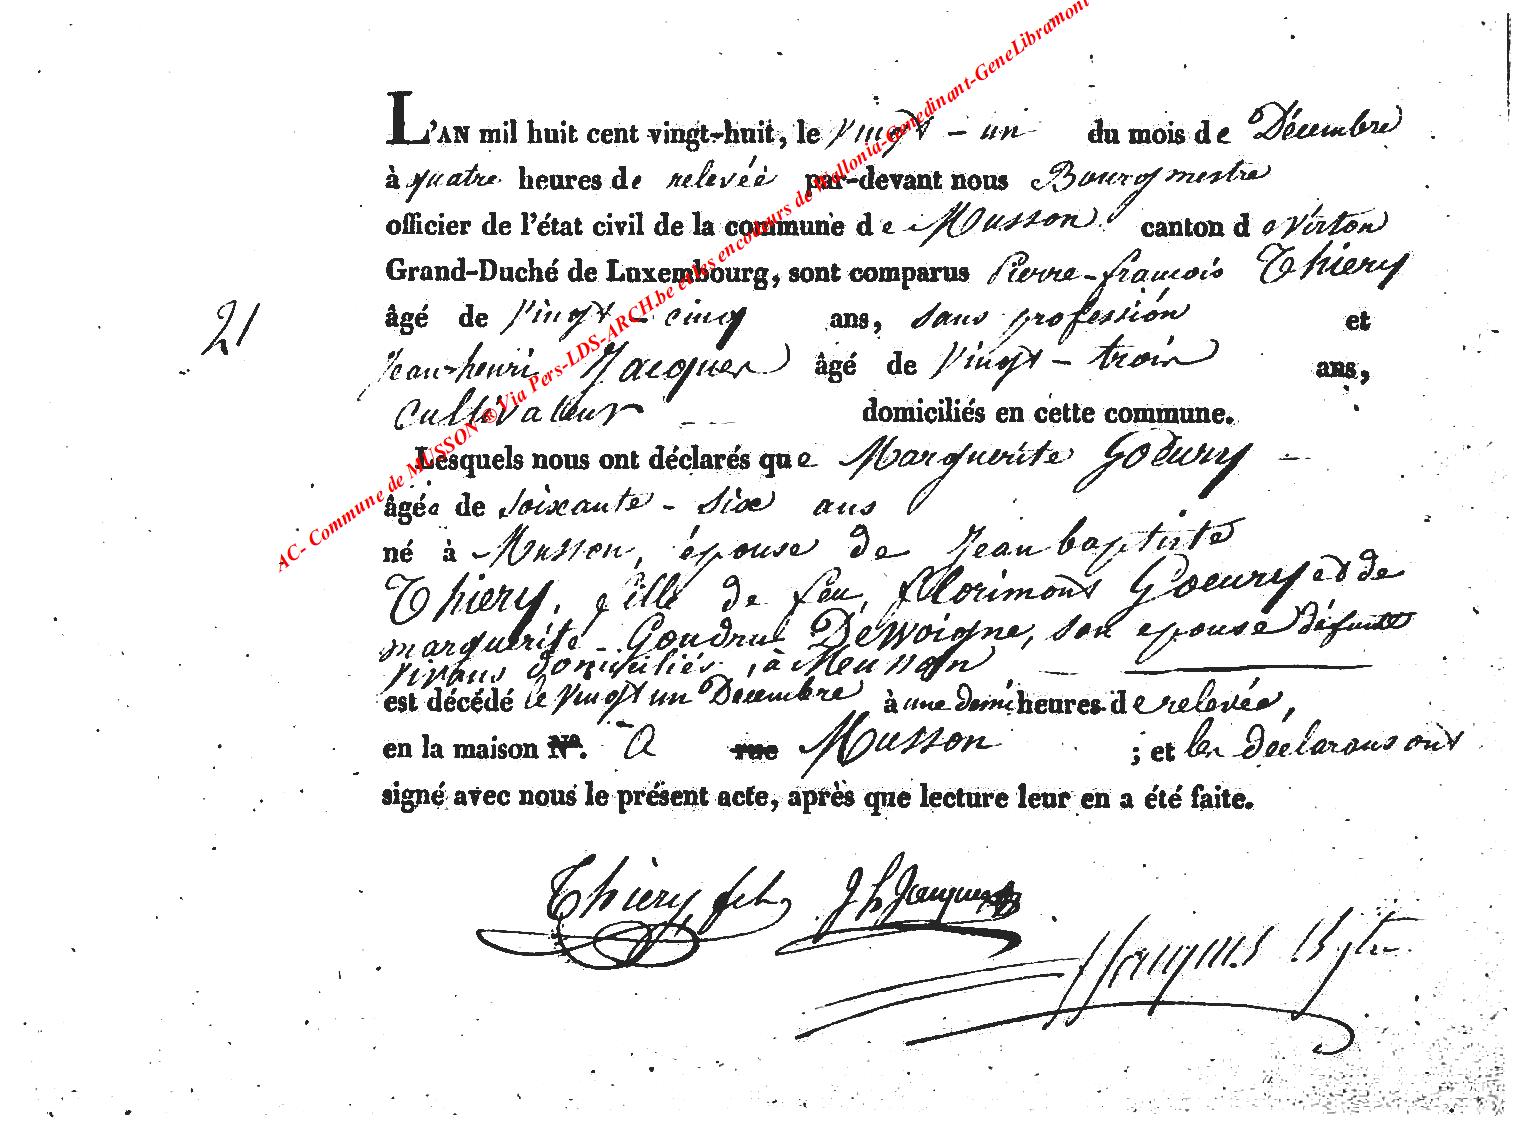 L'AN mil huit cent vingt-huit, le vingt-un du mois de Décembre
à quatre heures de relevée par-devant nous Bourgmestre
officier de l'état civil de la commune de Musson canton de Virton
Grand-Duché de Luxembourg, sont comparus Pierre-françois Thiery
âgé de vingt-cinq ans, sans profession et
21
Jean-henri Jacques âgé de vingt-trois ans,
cultivateur domiciliés en cette commune.
Lesquels nous ont déclarés que Marguerite Goeury
âgée de soixante-six ans
né à Musson, épouse de Jean baptiste
Thiery, fille de feu, florimont Goeury et de
marguerite Dewoigne, son epouse défunte
vivans domiciliés, à Musson
est décédé le vingt un Décembre à une demi heures de relevée,
en la maison No. a rue Musson ; et les déclarans ont
signé avec nous le présent acte, après que lecture leur en a été faite.
Thiery J h Jacques
Jacques
AC- Commune de MUSSON ® Via Pers-LDS-ARCH.be et les encodeurs de Wallonia-Genedinant-GeneLibramont